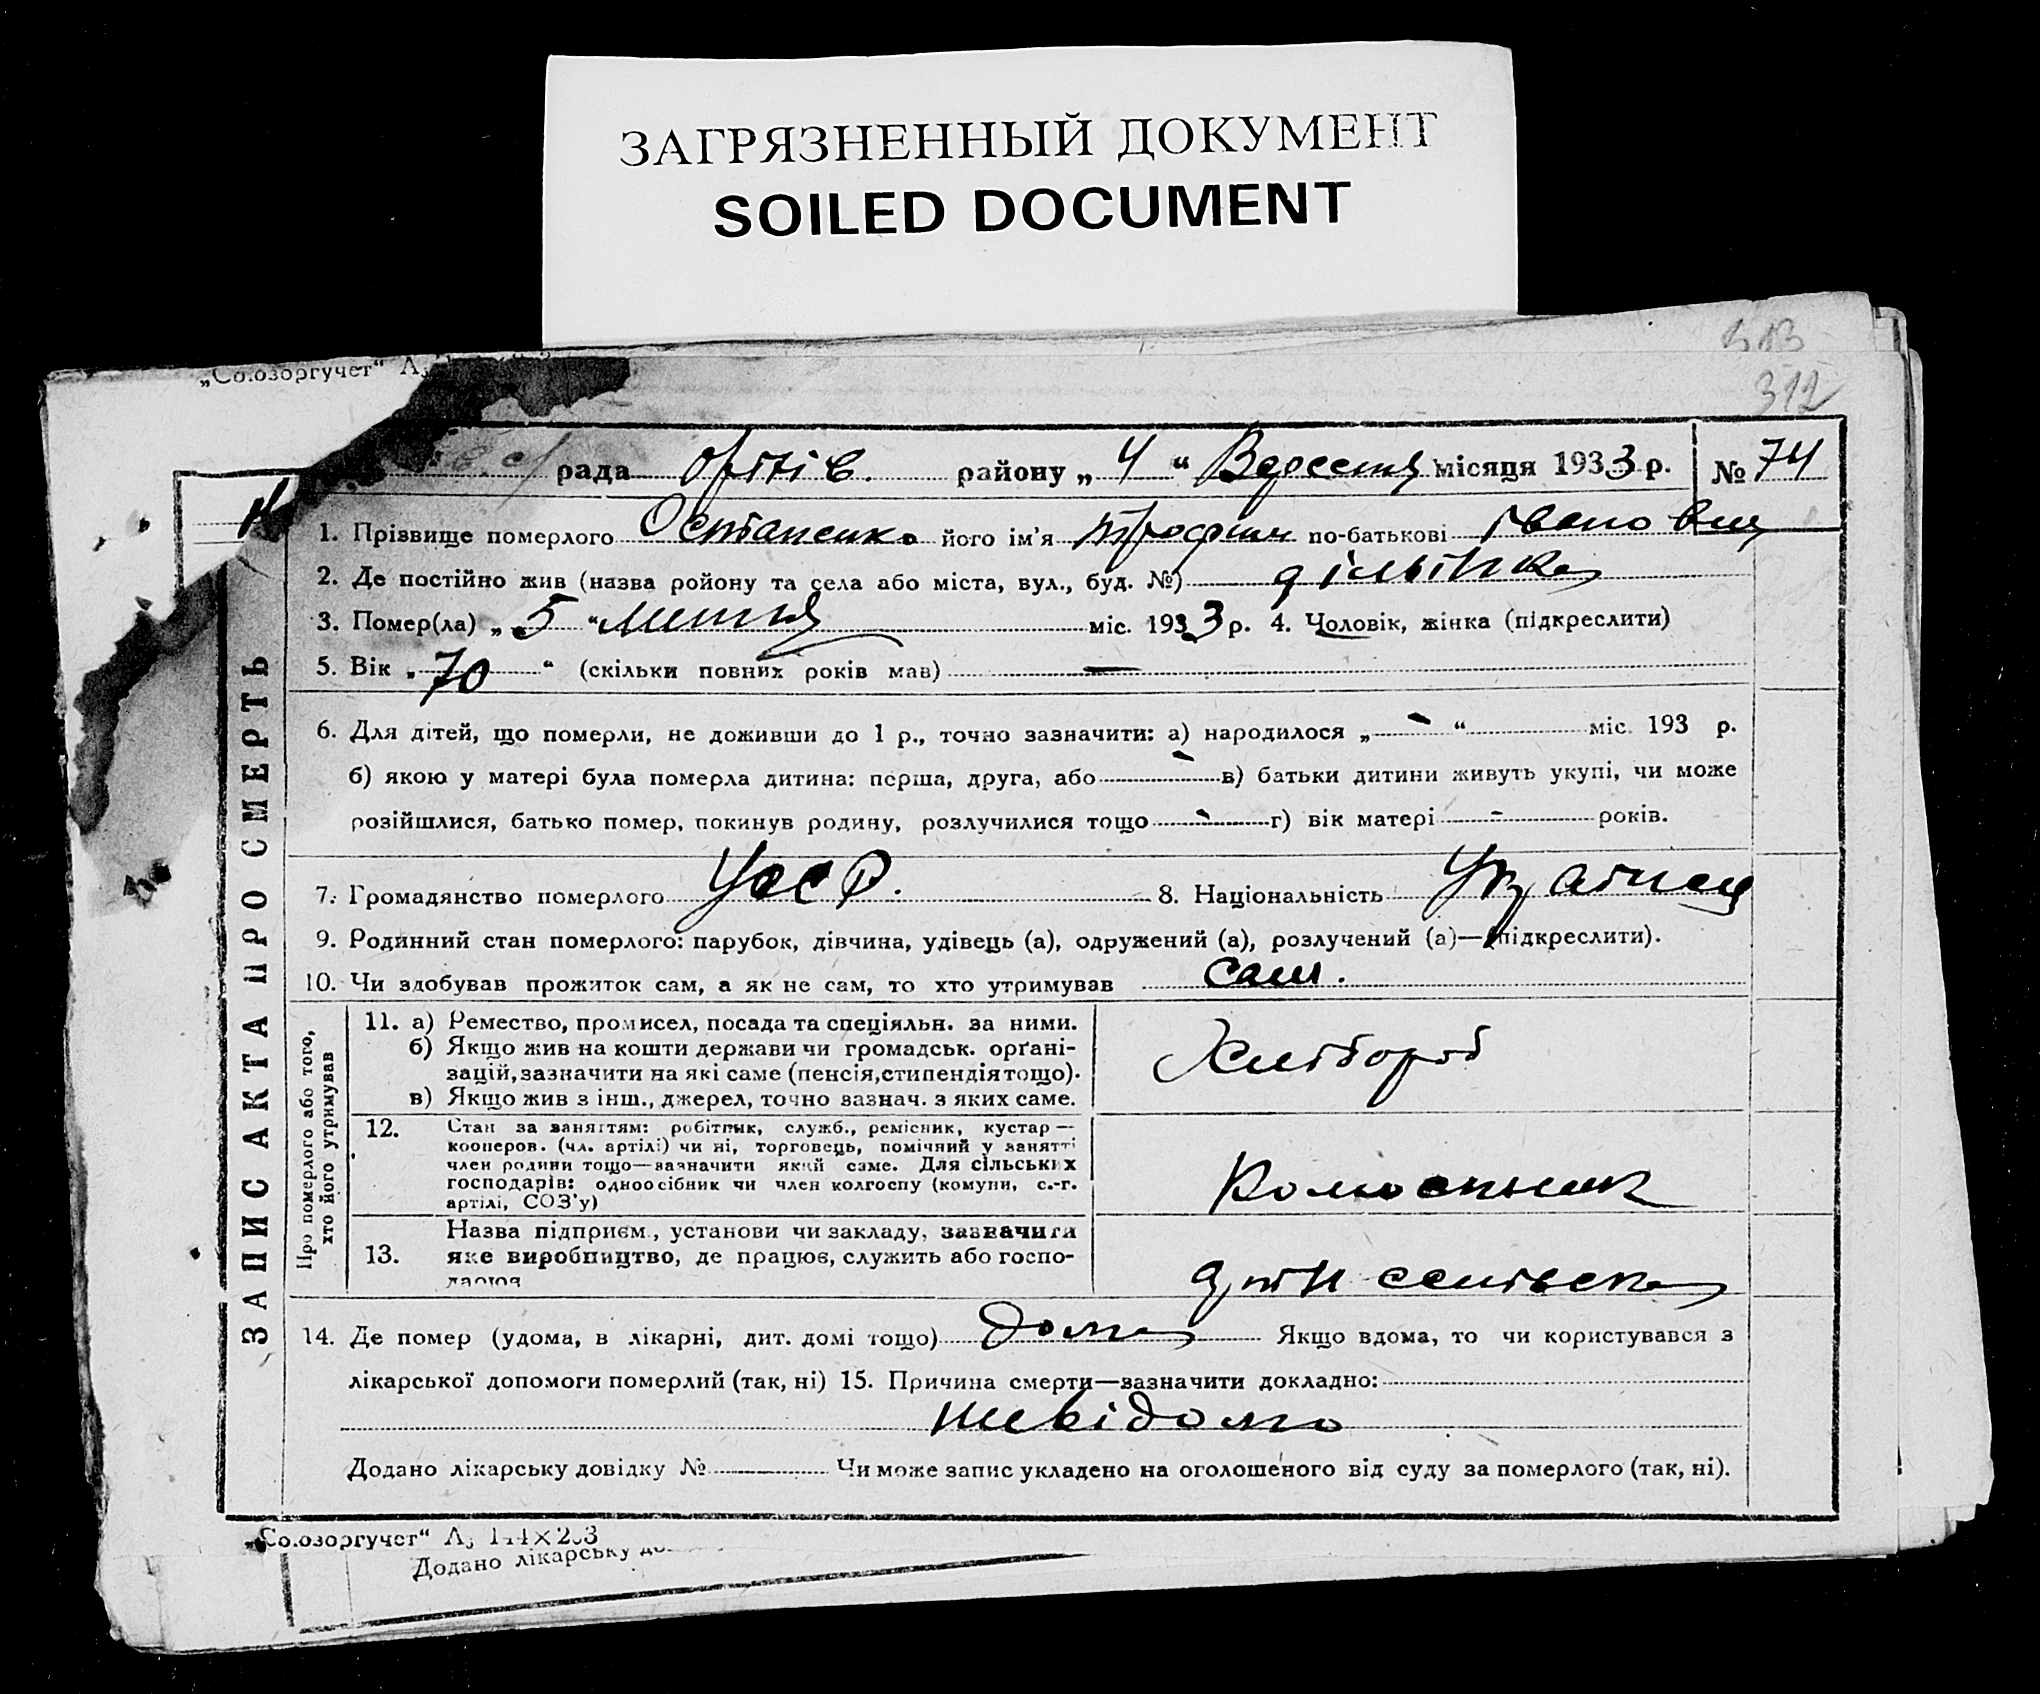 ЗАГРЯЗНЕННЫЙ ДОКУМЕНТ
SOILED DOCUMENT
313
312
„Союзоргучет“
рада Оріхів. району „ 4 “ Вересня місяця 1933 р. № 74
1. Прізвище померлого Остапенко його ім’я Трофим по-батькові Івано вич
2. Де постійно жив (назва ройону та села або міста, вул., буд. №)
3. Помер(ла) „ 5 “ Липня міс. 1933 р. 4. Чоловік, жінка (підкреслити)
5. Вік „ 70 “ (скільки повних років мав) —
6. Для дітей, що померли, не доживши до 1 р., точно зазначити: а) народилося „ - “ міс. 193 р.
б) якою у матері була померла дитина: перша, друга, або - в) батьки дитини живуть укупі, чи може
розійшлися, батько помер, покинув родину, розлучилися тощо - г) вік матері - років.
7. Громадянство померлого УССР. 8. Національність Українец
9. Родинний стан померлого: парубок, дівчина, удівець (а), одружений (а), розлучений (а)—(підкреслити).
10. Чи здобував прожиток сам, а як не сам, то хто утримував сам.
ЗАПИС АКТА ПРО СМЕРТЬ
Про померлого або того,
хто його утримував
11. а) Ремество, промисел, посада та спеціяльн. за ними.
б) Якщо жив на кошти держави чи громадськ. орґані-
зацій, зазначити на які саме (пенсія, стипендія тощо).
в) Якщо жив з інш., джерел, точно зазнач. з яких саме.
Хлібороб
12. Стан за заняттям: робітник, служб., ремісник, кустар—
кооперов. (чл. артілі) чи ні, торговець, помічний у занятті
член родини тощо—зазначити який саме. Для сільських
господарів: одноосібник чи член колгоспу (комуни, с.-г.
артілі, СОЗ’у)
Колгоспник
13. Назва підприєм., установи чи закладу, зазначити
яке виробництво, де працює, служить або госпо-
дарює
14. Де помер (удома, в лікарні, дит. домі тощо) дома Якщо вдома, то чи користувався з
лікарської допомоги померлий (так, ні) 15. Причина смерти—зазначити докладно:
невідомо
Додано лікарську довідку № Чи може запис укладено на оголошеного від суду за померлого (так, ні).
„Союзоргучет“ А5 144×203
Додано лікарську до